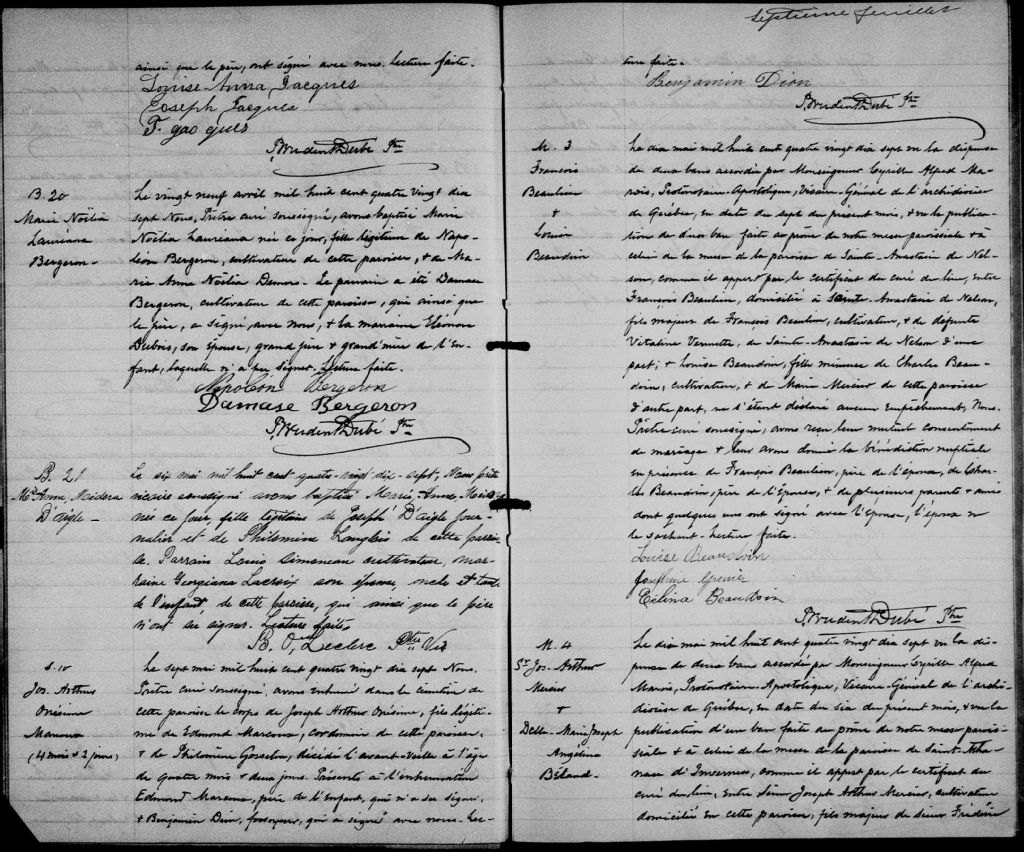 ainsi que le père, ont signé avec nous. Lecture faite.
Louise-Anna Jacques
Joseph Jacques
F. gac ques
P. Prudent Dubé Ptre
B. 20
Marie Noëlia
Lauriana
Bergeron-
Le vingt neuf avril mil huit cent quatre vingt dix
sept Nous, Prêtre curé soussigné, avons baptisé Marie
Noëlia Lauriana née ce jour, fille légitime de Napo-
léon Bergeron, cultivateur de cette paroisse, & de Ma-
rie Anne Noëlia Demers. Le parrain a été Damase
Bergeron, cultivateur de cette paroisse, qui ainsi que
le père, a signé avec nous, & la marraine Eléonore
Dubois, son épouse, grand père & grand'mère de l'En-
fant, laquelle n'a pu signer. Lecture faite.
Napoléon Bergeron
Damase Bergeron
P. Prudent Dubé Ptre
B. 21
Mie Anne, Médora
D'aigle-
Le six mai mil huit cent quatre-vingt dix-sept, Nous prêtre
vicaire soussigné avons baptisé Marie, Anne, Médora
née ce jour, fille légitime de Joseph D'aigle jour-
nalier et de Philomène Langlois de cette parois-
se. Parrain Louis Simoneau cultivateur, mar-
raine Georgiana Lacroix son épouse, oncle et tante
de l'enfant, de cette paroisse, qui ainsi que le père
n'ont su signer. Lecture faite.
B. O. Leclerc Ptre Vic
S. 10
Jos. Arthur
Onésime
Marcoux
(4 mois & 2 jours)
Le sept mai mil huit cent quatre vingt dix sept Nous
Prêtre curé soussigné, avons inhumé dans le cimetière de
cette paroisse le corps de Joseph Arthur Onésime, fils légiti-
me de Edmond Marcoux, cordonnier de cette paroisse,
& de Philomène Gosselin, décédé l'avant-veille à l'âge
de quatre mois & deux jours. Présents à l'inhumation
Edmond Marcoux, père de l'Enfant, qui n'a su signer,
& Benjamin Dion, fossoyeur, qui a signé avec nous. Lec-
Septième feuillet
ture faite.
Benjamin Dion
P. Prudent Dubé Ptre
M. 3
François
Beaulieu
&
Louise
Beaudoin
Le dix mai mil huit cent quatre vingt dix sept vu la dispense
de deux bans accordée par Monseigneur Cyrille Alfred Ma-
rois, Protonotaire-Apostolique, Vicaire-Général de l'archidiocèse
de Québec, en date du sept du présent mois, & vu la publica-
tion de d'un ban faite au prône de notre messe paroissiale & à
celui de la messe de la paroisse de Sainte-Anastasie de Nel-
son, comme il appert par le certificat du curé du lieu, entre
François Beaulieu, domicilié à Sainte-Anastasie de Nelson,
fils majeur de François Beaulieu, cultivateur, & de défunte
Vitaline Vermette, de Sainte-Anastasie de Nelson d'une
part; & Louise Beaudoin, fille mineure de Charles Beau-
doin, cultivateur, & de Marie Mercier de cette paroisse
d'autre part, ne s'étant déclaré aucun empêchement, Nous
Prêtre curé soussigné, avons reçu leur mutuel consentement
de mariage & leur avons donné la bénédiction nuptiale
en présence de François Beaulieu, père de l'époux, de Char-
les Beaudoin, père de l'Epouse, & de plusieurs parents & amis
dont quelques uns ont signé avec l'épouse, l'époux ne
le sachant. Lecture faite.
Louise Beaudoin
Joséphine Grenier
Célina Beaudoin
P. Prudent Dubé Ptre
M. 4
Sr. Jos. Arthur
Mercier
&
Delle. Marie Joseph
Angélina
Béland-
Le dix mai mil huit cent quatre vingt dix sept vu la dis-
pense de deux bans accordée par Monseigneur Cyrille Alfred
Marois, Protonotaire-Apostolique, Vicaire-Général de l'archi-
diocèse de Québec, en date du six du présent mois, & vu la
publication d'un ban faite au prône de notre messe parois-
siale & à celui de la messe de la paroisse de Saint-Atha-
nase d'Inverness, comme il appert par le certificat du
curé du lieu, Entre Sieur Joseph Arthur Mercier, cultivateur
domicilié en cette paroisse, fils majeur de sieur Frédéric